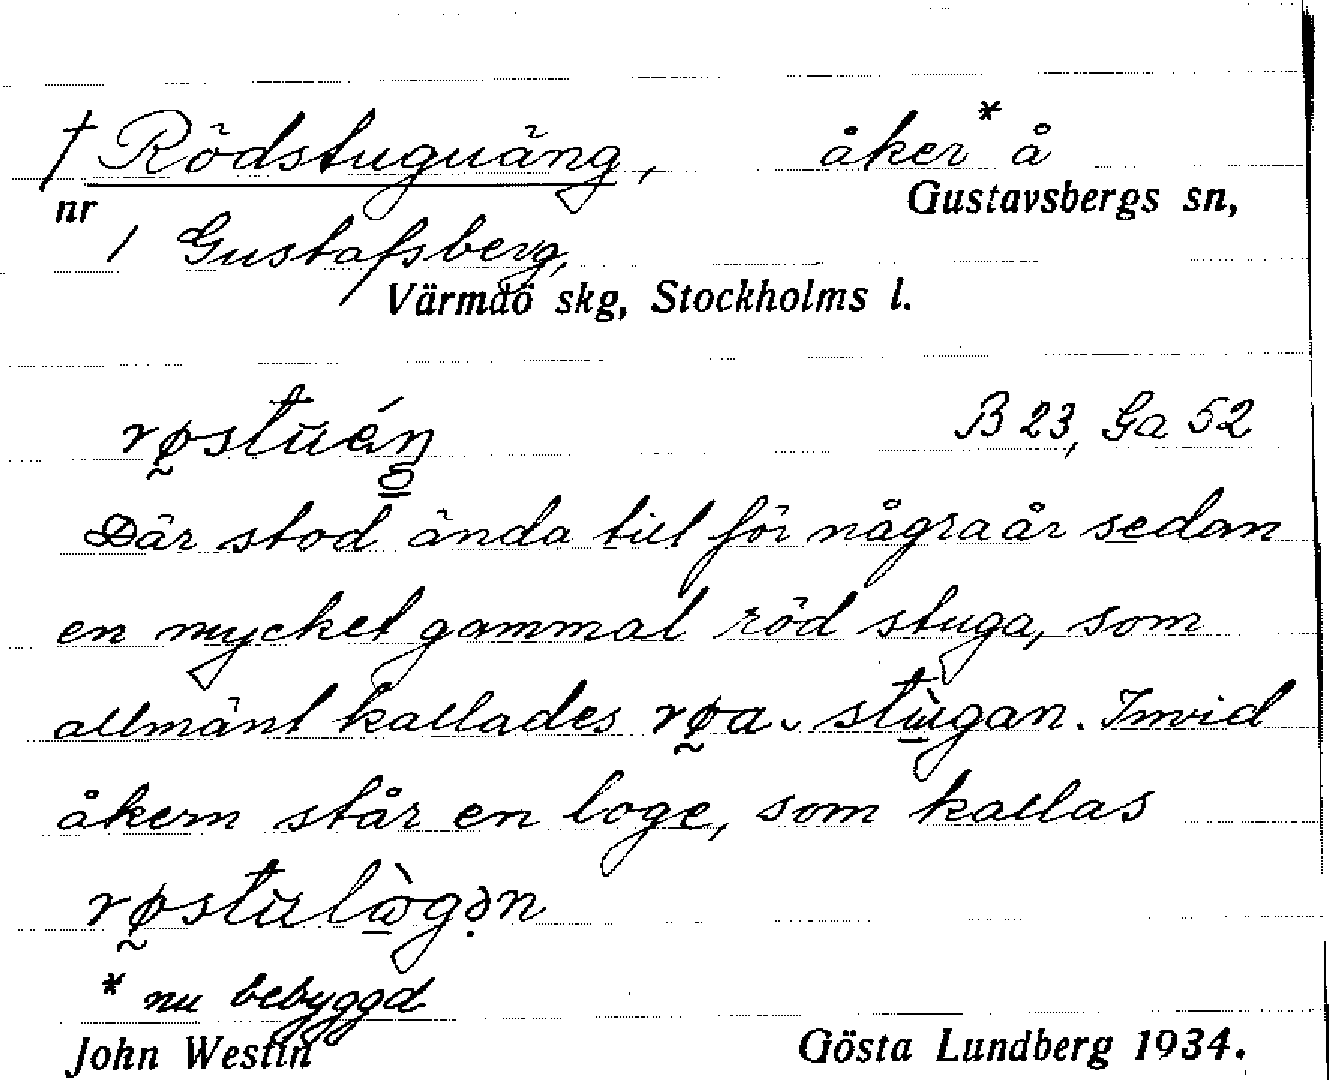 † Rödstuguäng, åker* å
nr Gustavsbergs sn,
1 Gustafsberg,
Värmdö skg, Stockholms l.
B 23, Ga 52
Där stod ända till för några år sedan
en mycket gammal röd stuga, som
allmänt kallades rø̰a stùgan. Invid
åkern står en loge, som kallas
* nu bebyggd
John Westin Gösta Lundberg 1934.